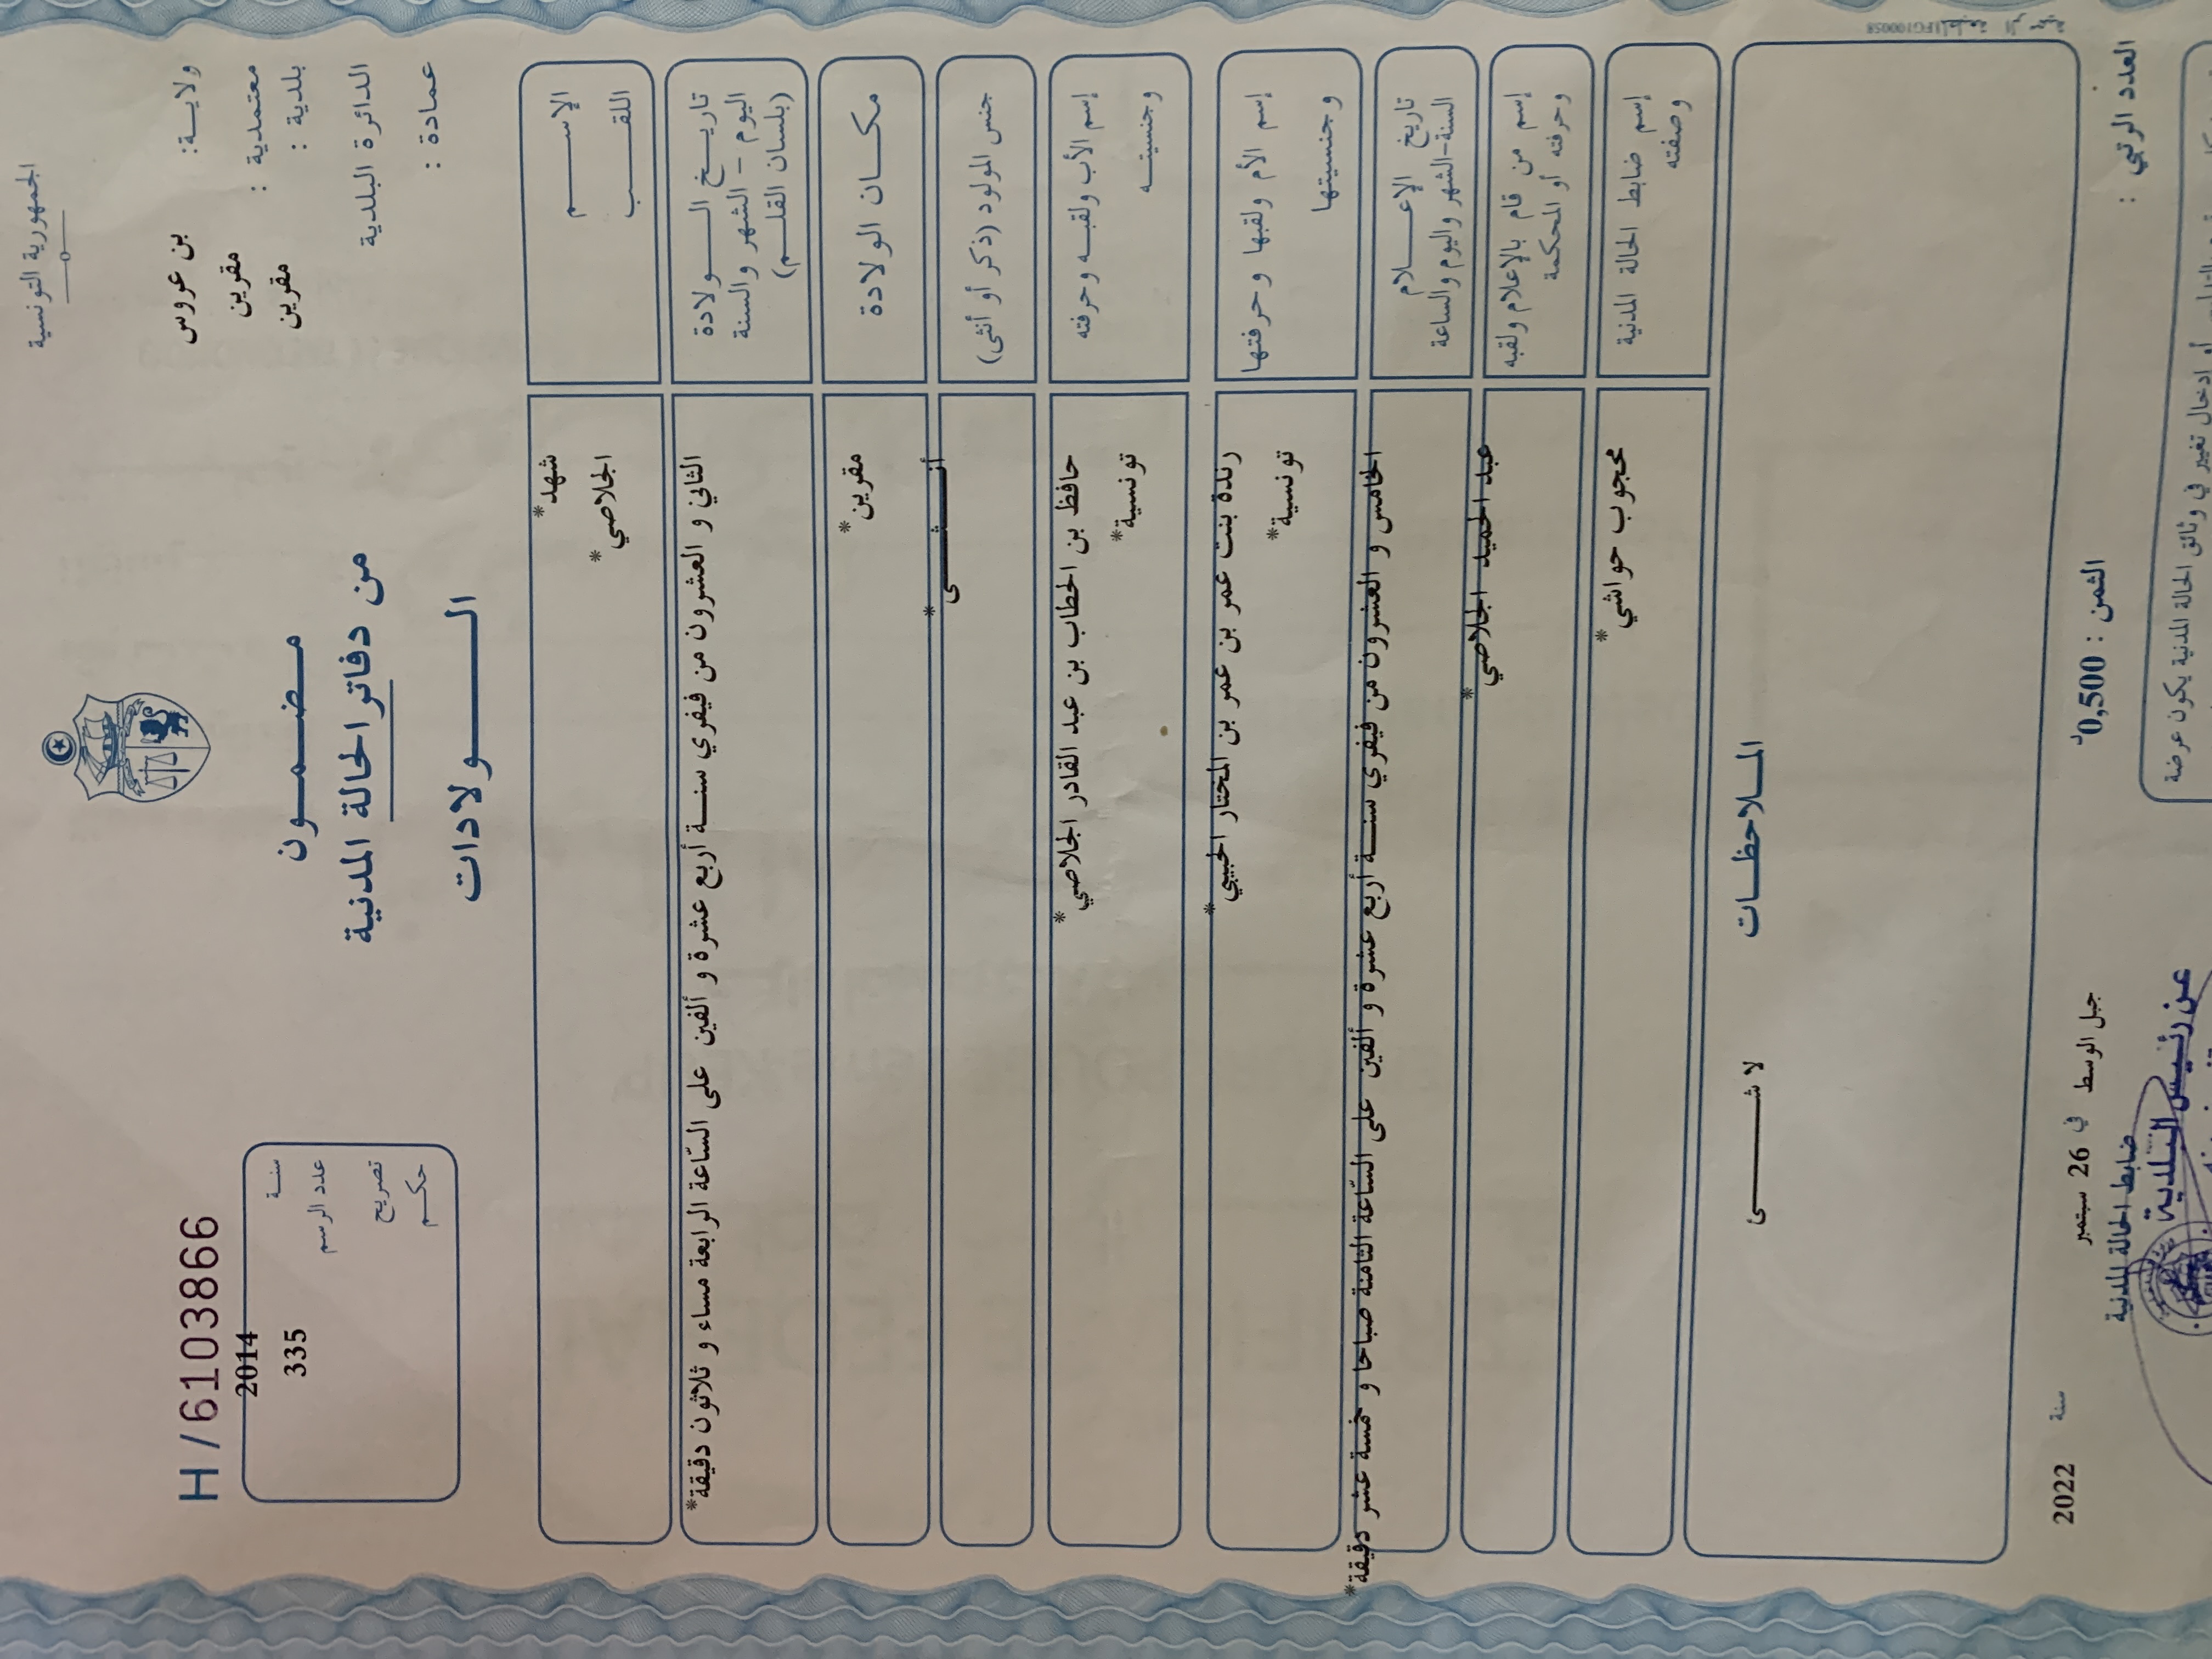 الجمهورية التونسية
ولايـــة: بن عروس
معتمدية : مقرين
بلدية : مقرين
الدائرة البلدية
عمادة :
مـضـمــون
من دفاتر الحالة المدنية
الــــولادات
H/6103866
سنــة 2014
عدد الرسم 335
تصريح
حكــم
الإســـــم شهد*
اللقـــــب الجلاصي*
تاريــخ الــــولادة
اليوم - الشهر والسنة
(بلسان القلــم)
الثاني و العشرون من فيفري سنــة أربع عشرة و ألفين على السّاعة الرابعة مساء و ثلاثون دقيقة*
مكــان الولادة مقرين*
جنس المولود (ذكر أو أنثى) أنــــثــــى*
إسم الأب ولقبــه وحرفته حافظ بن الحطاب بن عبد القادر الجلاصي*
وجنسيتــــه تونسية*
إسم الأم ولقبها وحرفتها رندة بنت عمر بن عمر بن المختار الحبيبي*
وجنسيتها تونسية*
تاريخ الإعـــــلام
السنة-الشهر واليوم والساعة
الخامس و العشرون من فيفري سنــة أربع عشرة و ألفين على السّاعة الثامنة صباحا و خمسة عشر دقيقة*
إسم من قام بالإعلام ولقبه
وحرفته أو المحكمة
عبد الحميد الجلاصي*
إسم ضابط الحالة المدنية
وصفته
محجوب حواشي*
الملاحظــات
لا شــــــــى
العدد الرتبي :
الثمن : 0,500د
جبل الوسط في 26 سبتمبر سنة 2022
ضابط الحالة المدنية
عن رئيس البلدية
أو إدخال تغيير في وثائق الحالة المدنية يكون عرضة